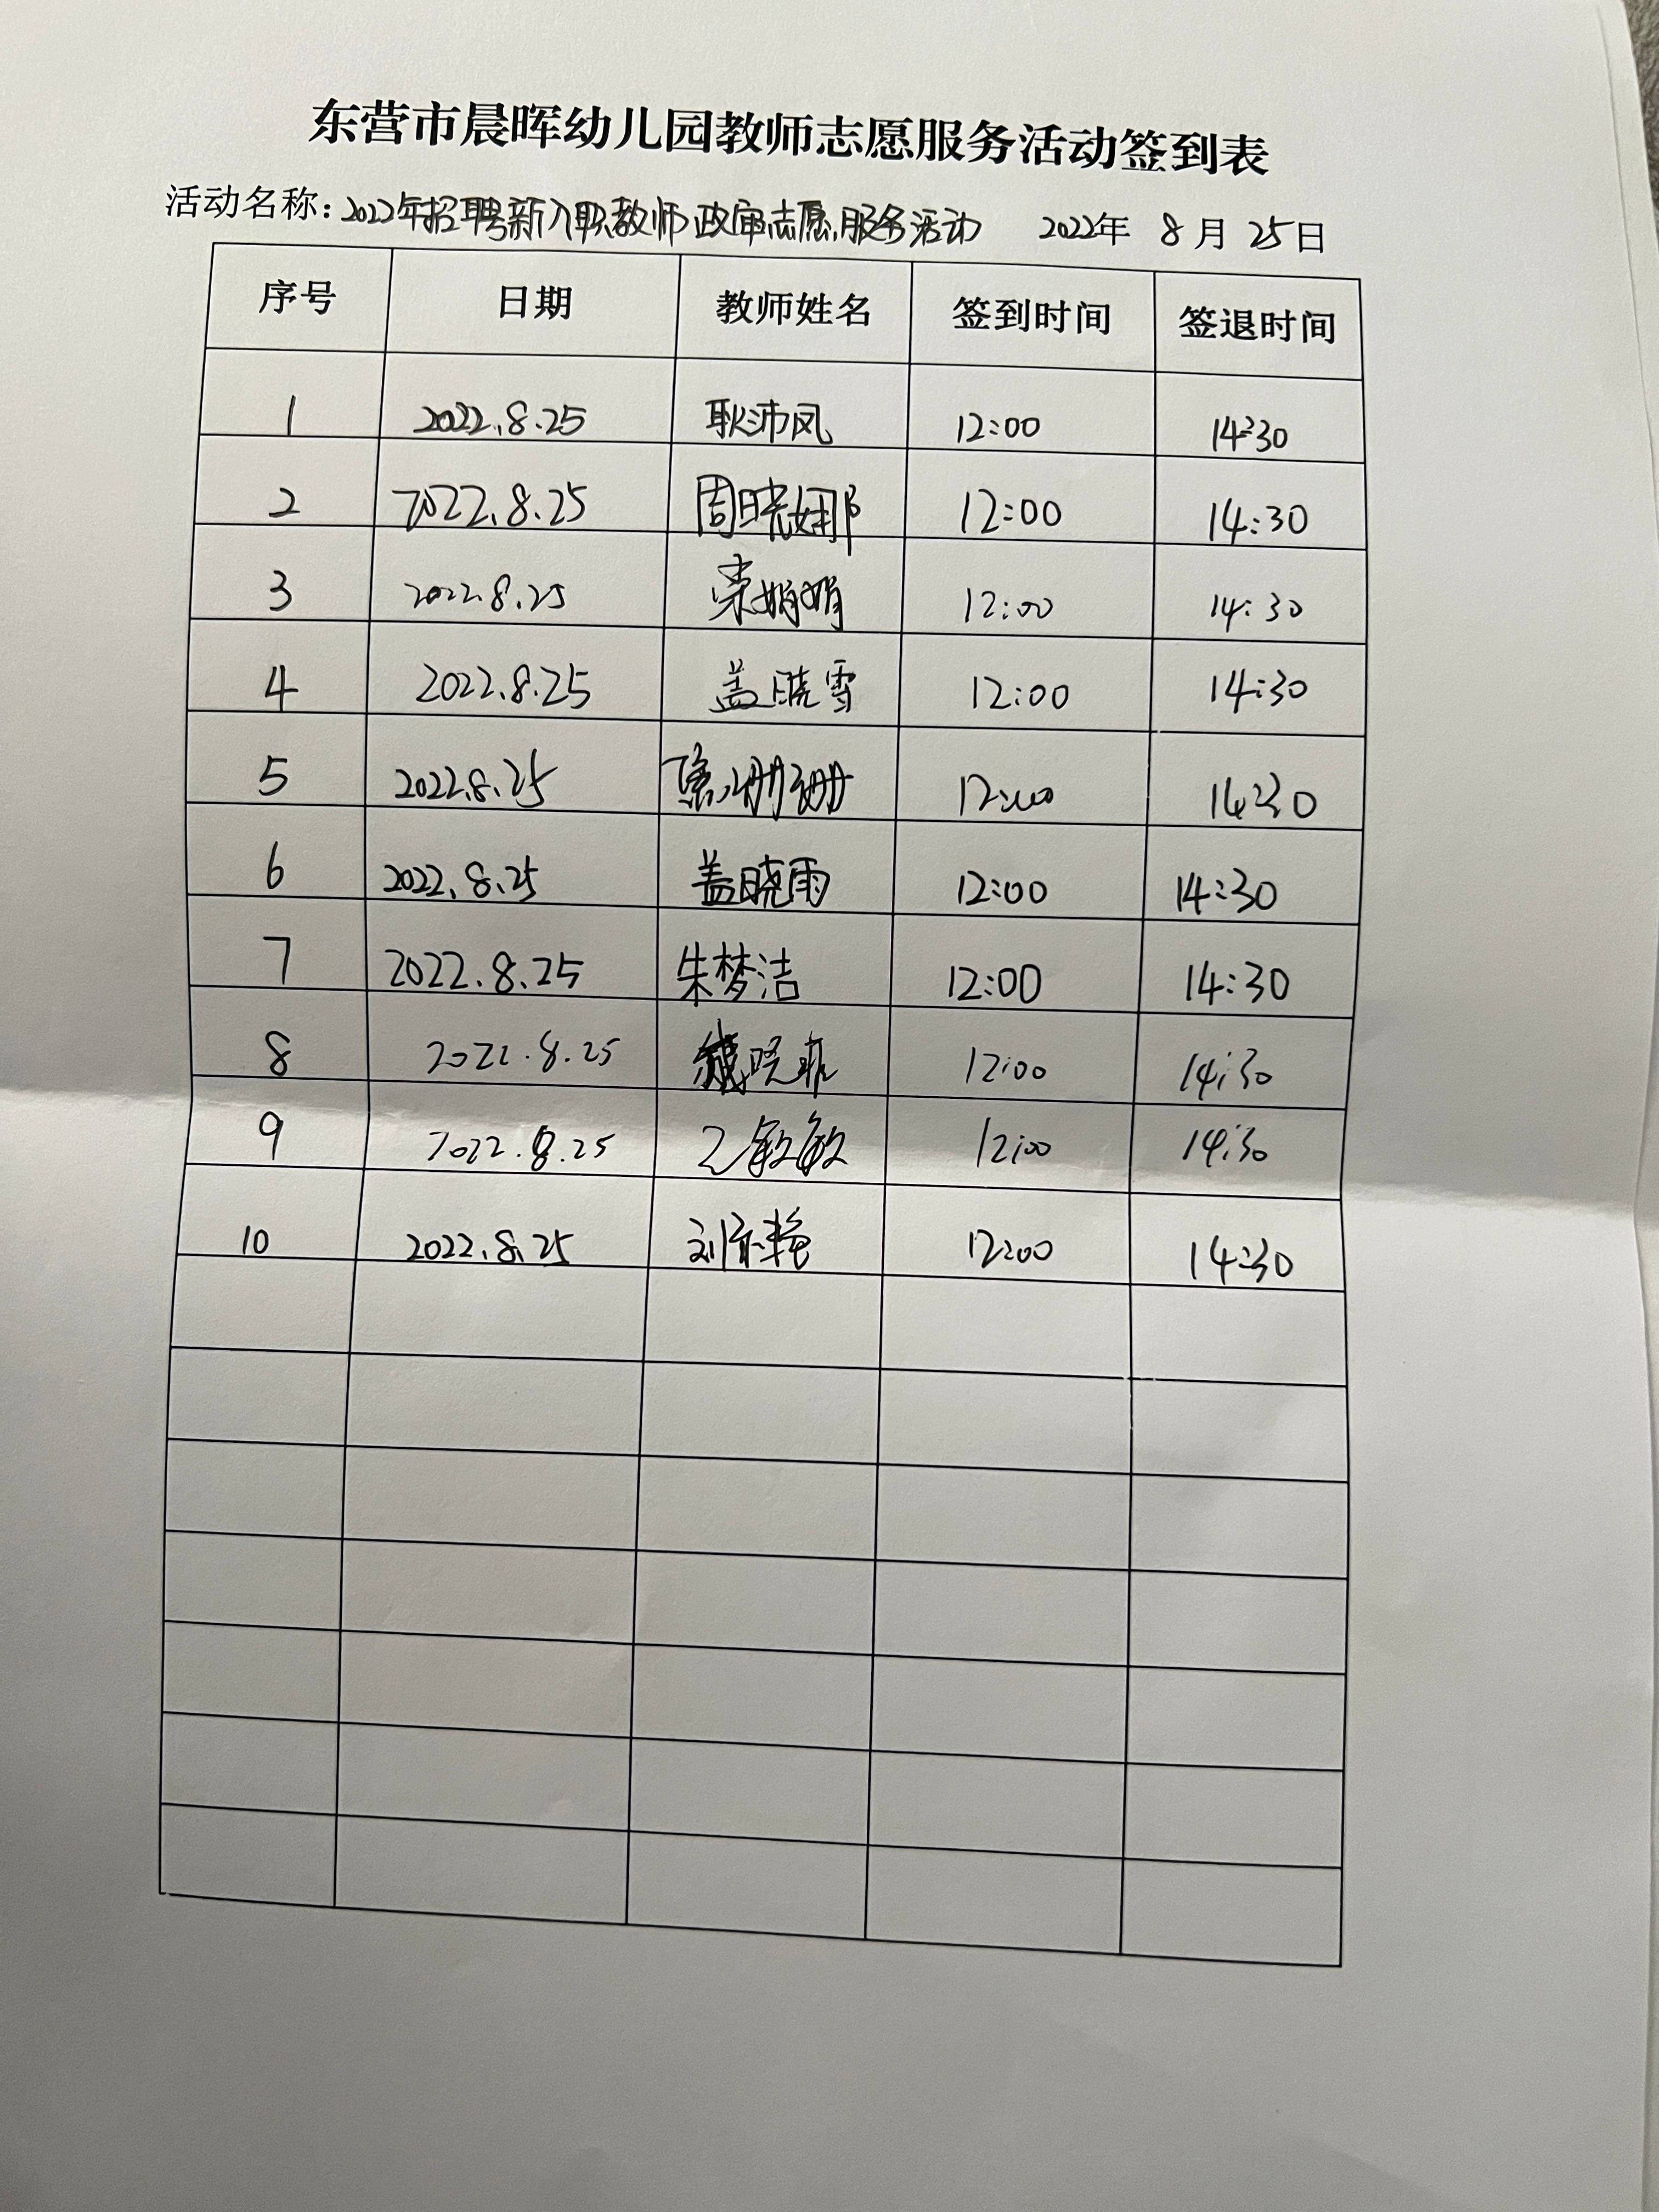 东营市晨晖幼儿园教师志愿服务活动签到表
活动名称：2022年招聘新入职教师政审志愿服务活动 2022年 8月 25日
序号 日期 教师姓名 签到时间 签退时间
1 2022.8.25 耿沛凤 12:00 14:30
2 2022.8.25 周晓娜 12:00 14:30
3 2022.8.25 荣娟娟 12:00 14:30
4 2022.8.25 盖晓雪 12:00 14:30
5 2022.8.25 12:00 14:30
6 2022.8.25 盖晓雨 12:00 14:30
7 2022.8.25 朱梦洁 12:00 14:30
8 2022.8.25 12:00 14:30
9 2022.8.25 12:00 14:30
10 2022.8.25 12:00 14:30